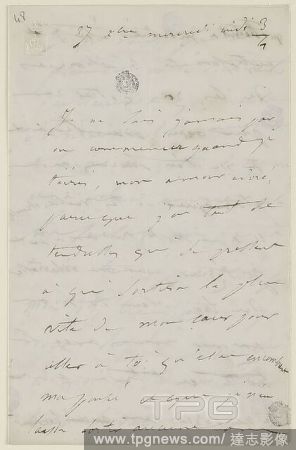 48
27 mercredi midi 3/4
Je ne sais jamais par
où commencer quand je
t'écris, mon amour aimé,
parce que j'ai tant de
tendresses qui se pressent
à qui sortira la plus
vite de mon cœur pour
aller à toi qu'elles encombrent
ma
TPG
www.tpgnews.com / 達志影像